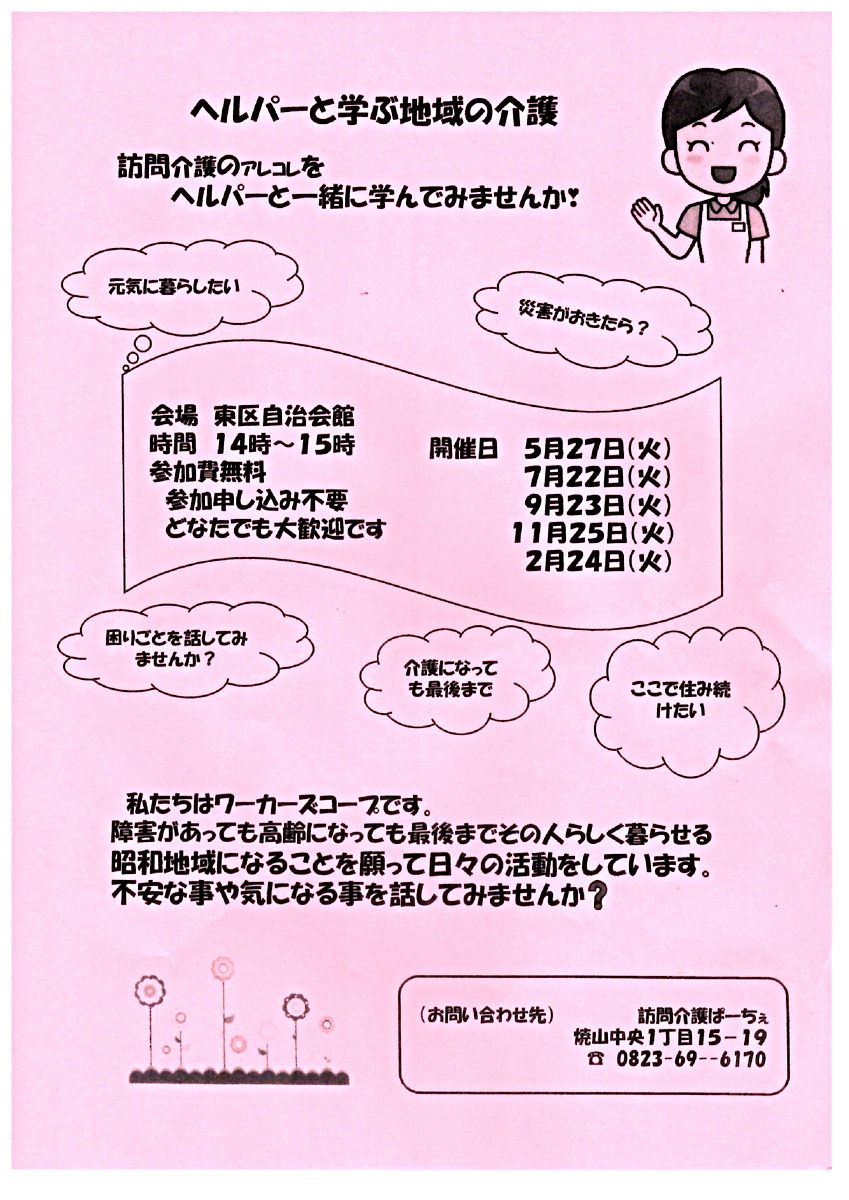 ヘルパーと学ぶ地域の介護
訪問介護のアレコレを
ヘルパーと一緒に学んでみませんか❣
元気に暮らしたい
災害がおきたら？
会場　東区自治会館
時間　14時～15時
参加費無料
参加申し込み不要
どなたでも大歓迎です
開催日　5月27日(火)
7月22日(火)
9月23日(火)
11月25日(火)
2月24日(火)
困りごとを話してみ
ませんか？
介護になって
も最後まで
ここで住み続
けたい
私たちはワーカーズコープです。
障害があっても高齢になっても最後までその人らしく暮らせる
昭和地域になることを願って日々の活動をしています。
不安な事や気になる事を話してみませんか？
(お問い合わせ先)　訪問介護ぱーちぇ
焼山中央1丁目15－19
☎ 0823-69--6170